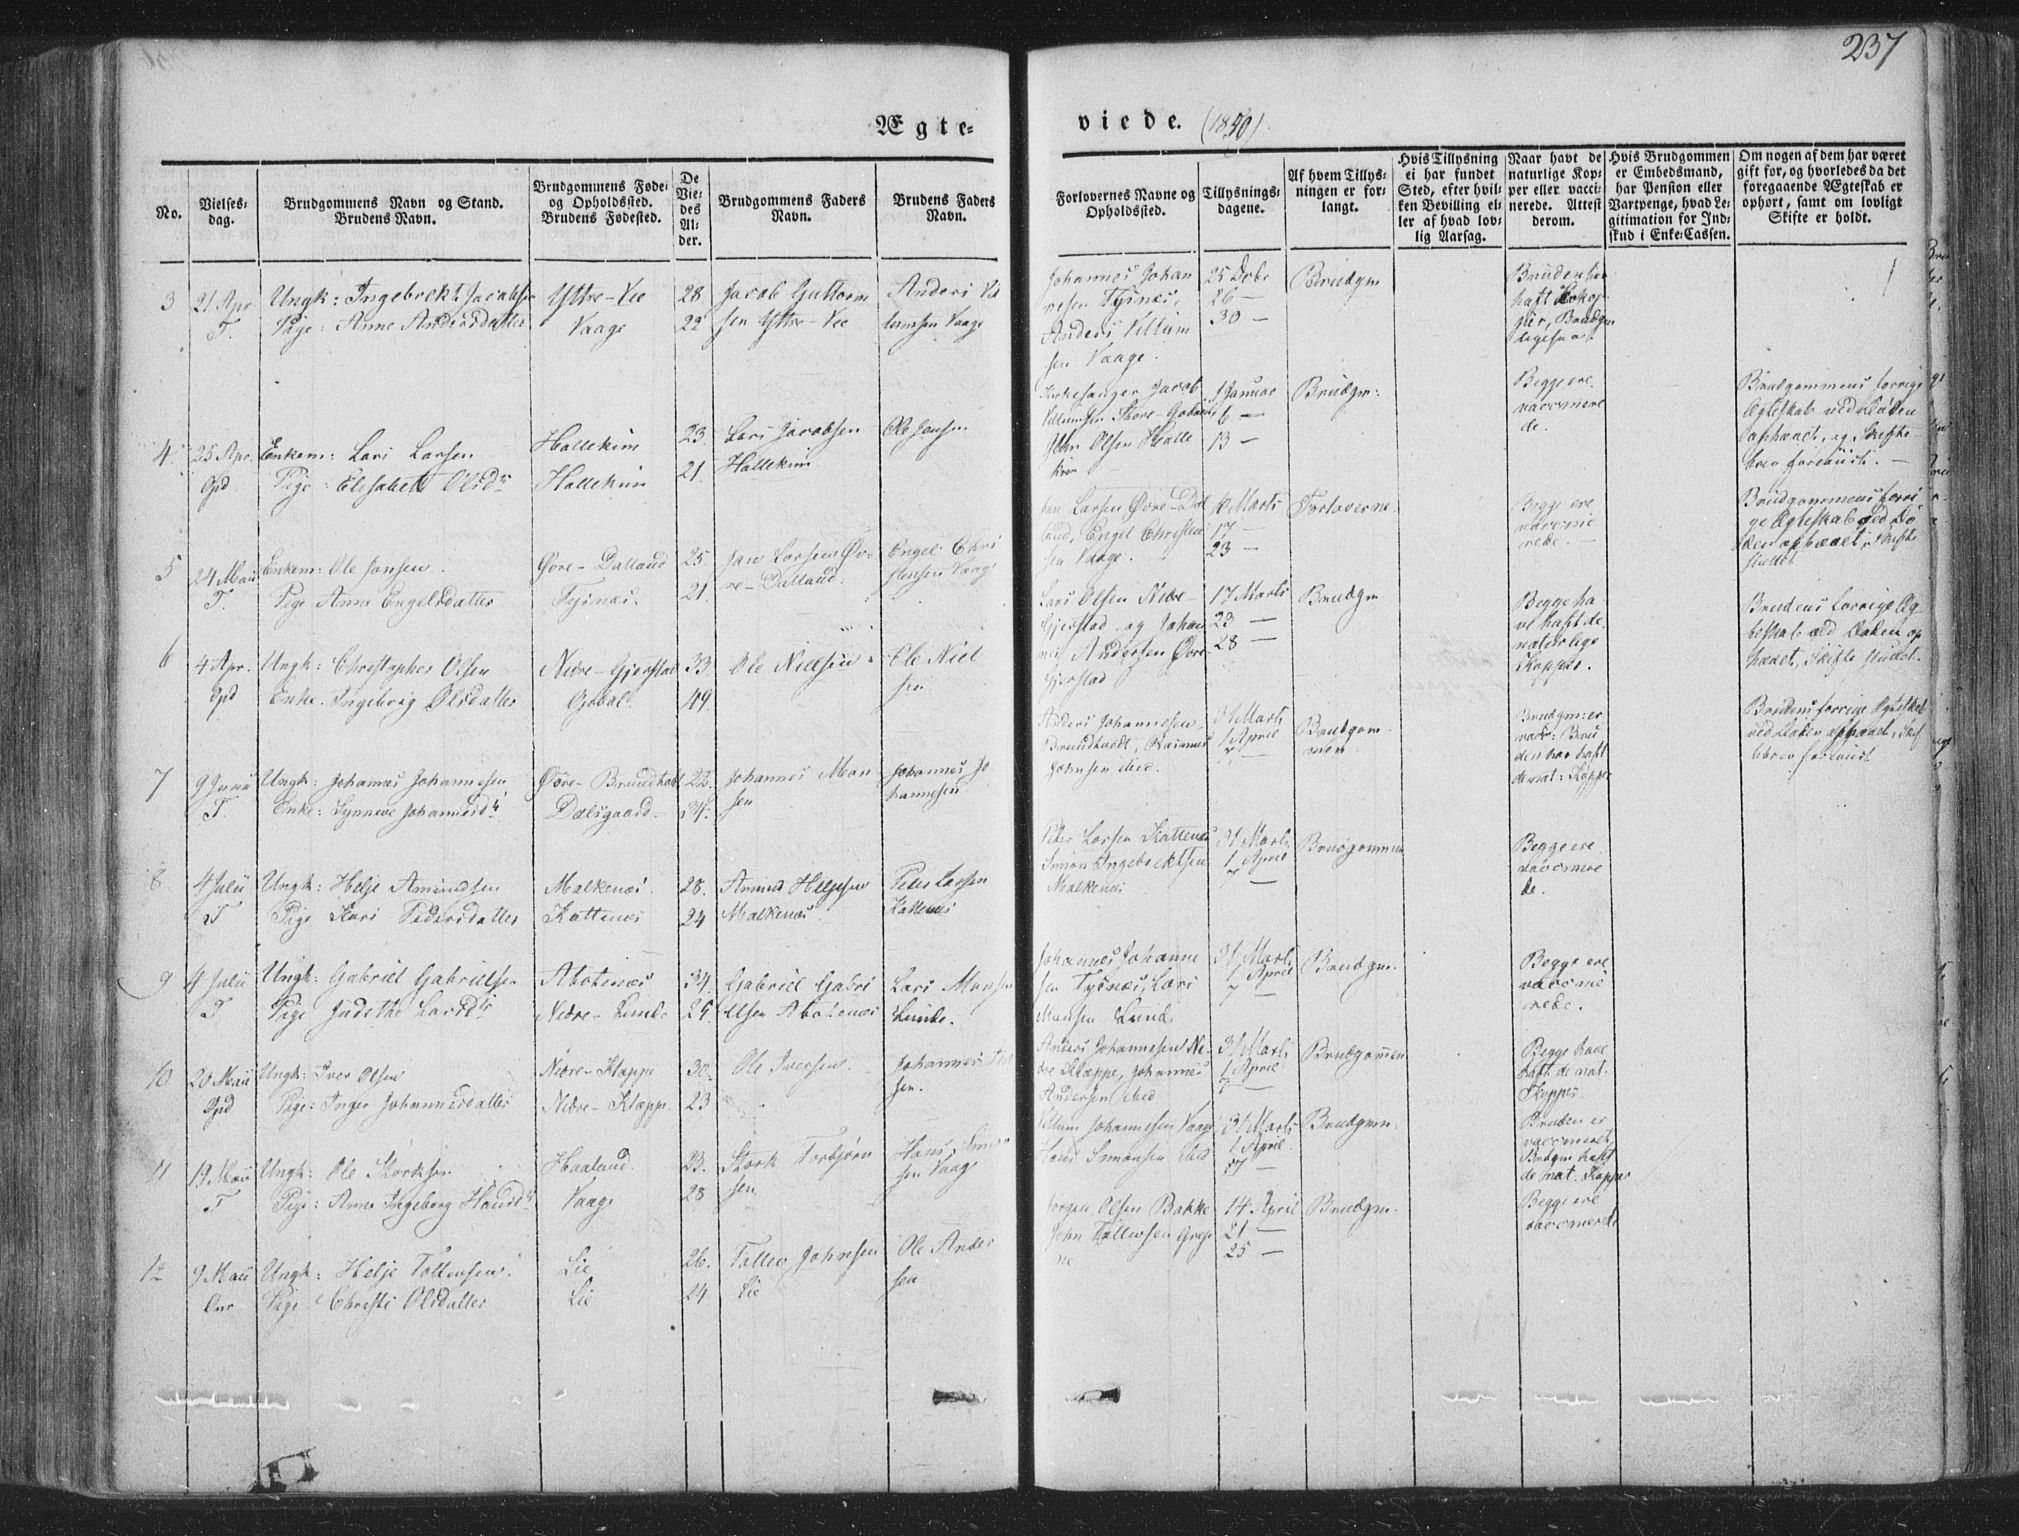 237
Ægte-
viede. (1850)
No.
Vielses-
dag.
Brudgommens Navn og Stand.
Brudens Navn.
Brudgommens Føde-
og Opholdssted.
Brudens Fødested.
De
Vie-
des
Al-
der.
Brudgommens Faders
Navn.
Brudens Faders
Navn.
Forlovernes Navne og
Opholdssted.
Tillysnings-
dagene.
Af hvem Tillys-
ningen er for-
langt.
Hvis Tillysning
ei har fundet
Sted, efter hvil-
ken Bevilling el-
ler af hvad lov-
lig Aarsag.
Naar havt de
naturlige Kop-
per eller vacci-
nerede. Attest
derom.
Hvis Brudgommen
er Embedsmand,
har Pension eller
Vartpenge, hvad Le-
gitimation for Ind-
skud i Enke-Cassen.
Om nogen af dem har været
gift før, og hvorledes da det
foregaaende Ægteskab er
ophørt, samt om lovligt
Skifte er holdt.
3
21 Apr
T.
Ungk: Ingebrekt Jacobsen
Pige: Anne Andersdatter
Yttre-Vee
Vaage
28
22
Jacob Guttorm
sen Yttre-Vee
Anders Vil
lumsen Vaage
Johannes Johan
nesen Tysnes,
Anders Villum
sen Vaage.
25 Debr
26 —
30 —
Brudgm
Bruden har
haft Kop-
per, Brudgm
ligesaa
4
25 Apr.
Opd
Enkem: Lars Larsen
Pige: Elisabeth Olsdr
Hallekim
Hallekim
23
21
Lars Jacobsen
Hallekim
Ole Jansen
Kirkesanger Jacob
Villumsen
Olsen Halle
kim
1 Januar
6 —
13 —
Brudgm:
Begge ere
vaccinere
de.
Brudgommens forrige
Ægteskab ved Døden
ophævet, og Skifte-
brev foreviist. —
5
24 Maii
T.
Enkem: Ole Jansen
Pige Anne Engelsdatter
Øvre-Dalland
Tysnes.
25.
21.
Jan Larsen Øv-
re-Dalland.
Engel Chri
stensen Vaage
Jan Larsen Øvre-Dal
land, Engel Christen
sen Vaage.
10 Marts
17 —
23 —
Forloverne.
Begge ere
vaccine
rede. —
Brudgommens forri
ge Ægteskab ved Dø
den ophævet, Skifte
sluttet
6
4 Apr.
Opd
Ungk: Christopher Olsen
Enke. Ingeborg Olsdatter
Nedre-Gjerstad
Gobal.
33.
49.
Ole Nielsen
Ole Niel
sen
Lars Olsen Nedre-
Gjerstad og Johan
nes Andersen Øvre
Gjerstad
17 Marts
23 —
28 —
Brudgm.
Begge ha
ve haft de
naturlige
Kopper.
Brudens forrige Æg-
teskab ved Døden op
hævet, Skifte sluttet.
7
9 Junii
T.
Ungk: Johannes Johannesen
Enke: Synneve Johannesdr
Øvre-Brundtvedt
Dalsgaard
22.
34.
Johannes Mon
sen
Johannes Jo
hannesen
Anders Johannesen
Brundtvedt, Rasmus
Johnsen ibid.
31 Marts
1 April
7 —
Brudgom
men
Brudgm: er
vacc: Bru
den har haft
de nat: Kopper
Brudens forrige Ægteskab
ved Døden ophævet, Skif
tebrev foreviist
8
4 Julii
T
Ungk: Helje Amundsen
Pige Kari Pedersdatter
Malkenes.
Kattenes
28.
24
Amund Heljesen
Malkenes
Peter Larsen
Kattenes
Peter Larsen Kattenes
Simon Ingebrektsen
Malkenes
31 Marts
1 April
7 —
Brudgommen
Begge ere
vaccinere
de.
9
4 Julii
T
Ungk: Gabriel Gabrielsen
Pige Judethe Larsdr
Alsteenes
Nedre-Lunde
34.
25.
Gabriel Gabri
elsen
Lars Monsen
Lunde.
Johannes Johanne
sen Tysnes, Lars
Monsen Lund
31 Marts
1 April
7 —
Brudgm.
Begge ere
vaccine
rede.
10
20 Maii
Opd
Ungk: Iver Olsen
Pige: Inger Johannesdatter
Nedre-Kloppe
Nedre-Kloppe.
30.
23
Ole Iversen.
Johannes
sen.
Anders Johannesen Ne-
dre Kloppe, Johannes
Andersen ibid
31 Marts
1 April
7 —
Brudgommen
Begge have
haft de nat.
Kopper
11
19 Maii
T
Ungk: Ole Storksen
Pige: Anne Ingeborg Hansdr
Haaland.
Vaage
23.
28
Stork Torbjørn
sen
Hans Simon
sen Vaage
Villum Johannesen Vaage
Hans Simonsen ibid
31 Marts
1 April
7 —
Brudgm:
Bruden er
vaccineret,
Brudgm haft
de nat. Kopper
12
9 Maii
Ungk: Helje Tollevsen
Pige Christi Olsdatter
Lie
Lie
26.
24
Tollev Johnsen
Lie
Ole Ander
sen
Jørgen Olsen Bakke
John Tollevsen
14 April
21 —
25 —
Brudgm.
Begge ere
vaccinerede